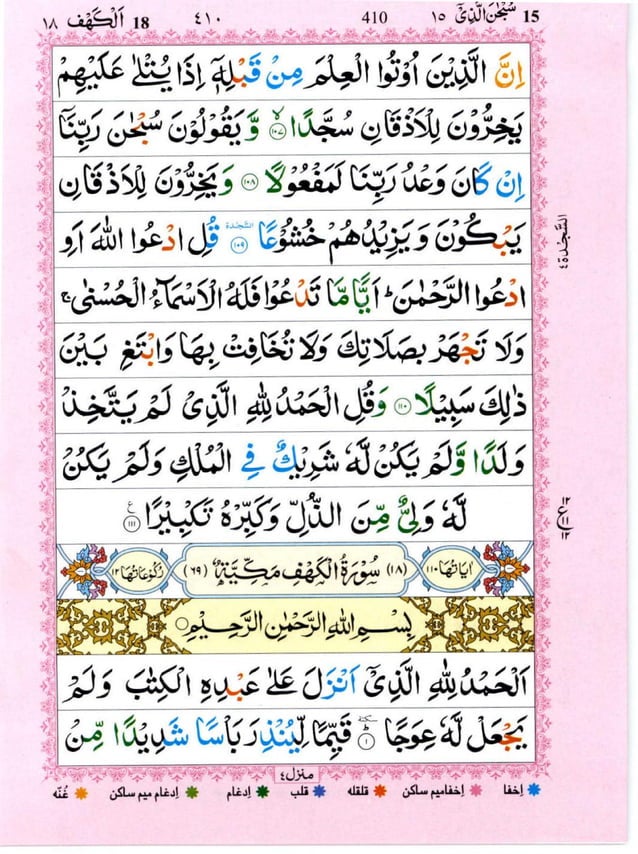 ١٨ اَلْكَهْف 18 ٤١٠ 410 سُبْحٰنَ الَّذِیْۤ ١٥ 15
اِنَّ الَّذِیْنَ اُوْتُوا الْعِلْمَ مِنْ قَبْلِهٖۤ اِذَا یُتْلٰى عَلَیْهِمْ
یَخِرُّوْنَ لِلْاَذْقَانِ سُجَّدًا ۙ﴿۱۰۷﴾ وَّ یَقُوْلُوْنَ سُبْحٰنَ رَبِّنَاۤ
اِنْ كَانَ وَعْدُ رَبِّنَا لَمَفْعُوْلًا ﴿۱۰۸﴾ وَ یَخِرُّوْنَ لِلْاَذْقَانِ
یَبْكُوْنَ وَ یَزِیْدُهُمْ خُشُوْعًا ﴿۱۰۹﴾ السَّجْدَة قُلِ ادْعُوا اللّٰهَ اَوِ
ادْعُوا الرَّحْمٰنَ ؕ اَیًّا مَّا تَدْعُوْا فَلَهُ الْاَسْمَآءُ الْحُسْنٰى ۚ
وَ لَا تَجْهَرْ بِصَلَاتِكَ وَ لَا تُخَافِتْ بِهَا وَ ابْتَغِ بَیْنَ
ذٰلِكَ سَبِیْلًا ﴿۱۱۰﴾ وَ قُلِ الْحَمْدُ لِلّٰهِ الَّذِیْ لَمْ یَتَّخِذْ
وَلَدًا وَّ لَمْ یَكُنْ لَّهٗ شَرِیْكٌ فِی الْمُلْكِ وَ لَمْ یَكُنْ
لَّهٗ وَلِیٌّ مِّنَ الذُّلِّ وَ كَبِّرْهُ تَكْبِیْرًا ﴿۱۱۱﴾ ع
السَّجْدَة ٤
اٰیَاتُهَا ١١٠ (١٨) سُوْرَةُ الْكَهْفِ مَكِّیَّةٌ (٦٩) رُكُوْعَاتُهَا ١٢
بِسْمِ اللّٰهِ الرَّحْمٰنِ الرَّحِیْمِ
اَلْحَمْدُ لِلّٰهِ الَّذِیْۤ اَنْزَلَ عَلٰى عَبْدِهِ الْكِتٰبَ وَ لَمْ
یَجْعَلْ لَّهٗ عِوَجًا ﴿۱﴾ؕ سكتة قَیِّمًا لِّیُنْذِرَ بَاْسًا شَدِیْدًا مِّنْ
منزل ٤
اِخفا اِخفامیم ساکن قلقله قلب اِدغام اِدغام میم ساکن غُنّه